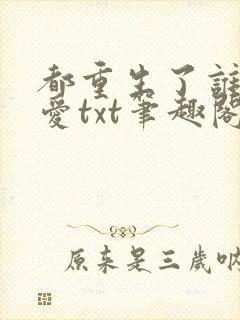 都重生了谁
爱txt笔趣阁
原来是三岁呐